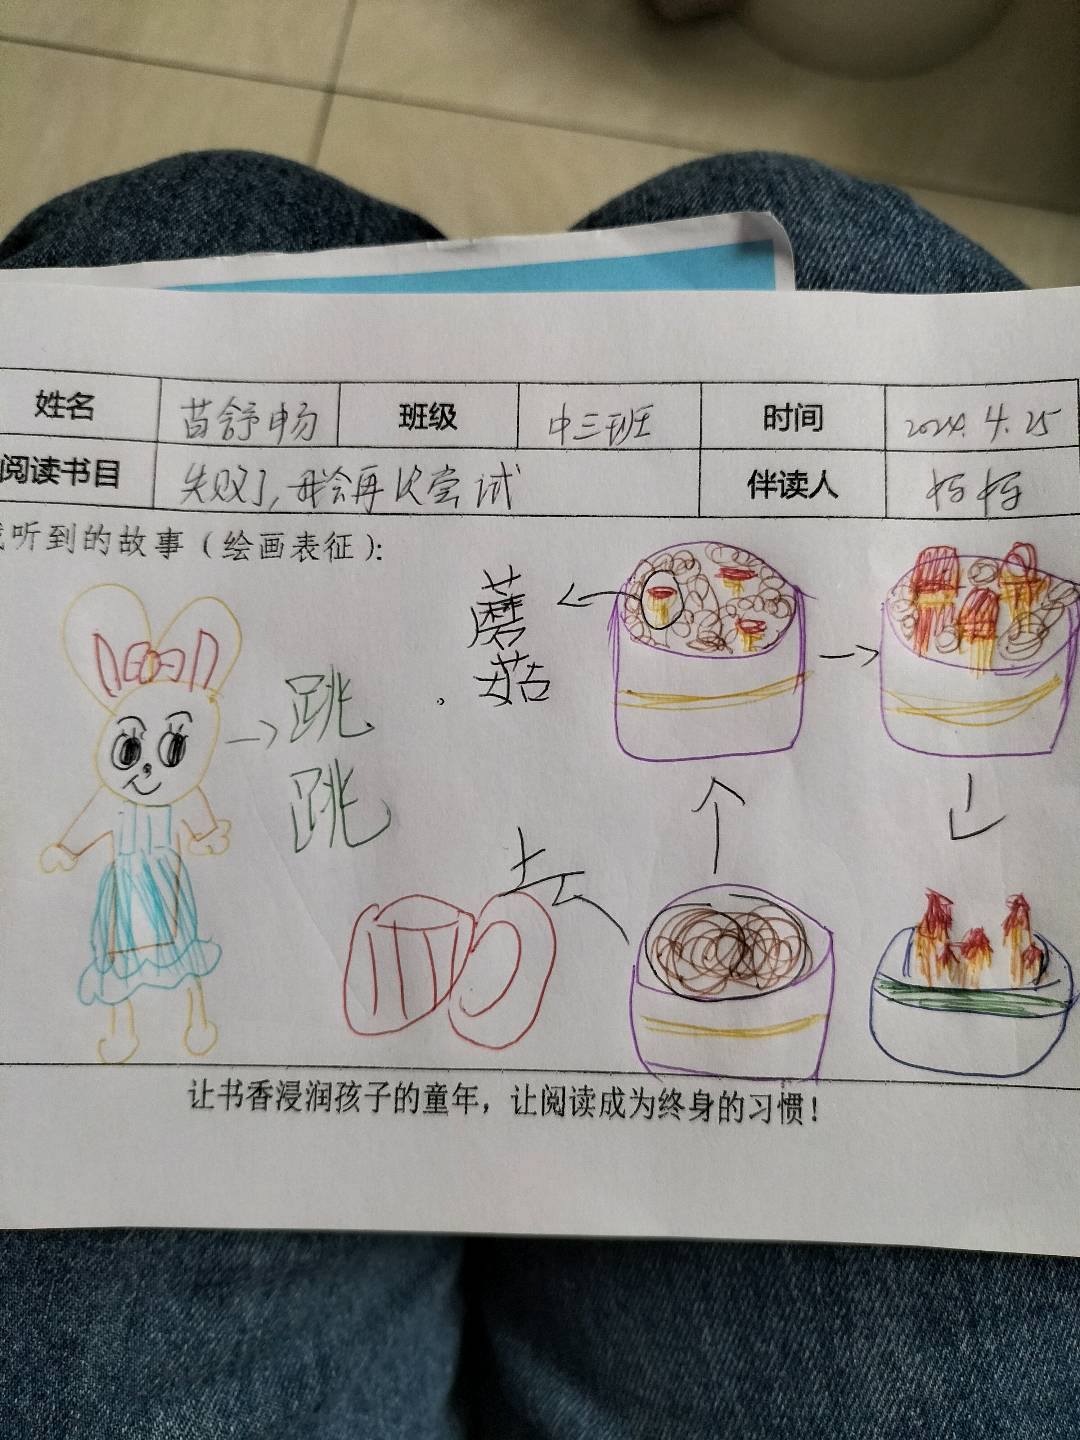 姓名 苗舒畅 班级 中三班 时间 2024.4.25
阅读书目 失败了,我会再次尝试 伴读人 妈妈
听到的故事（绘画表征）：
蘑
菇
跳
跳
土
让书香浸润孩子的童年，让阅读成为终身的习惯！